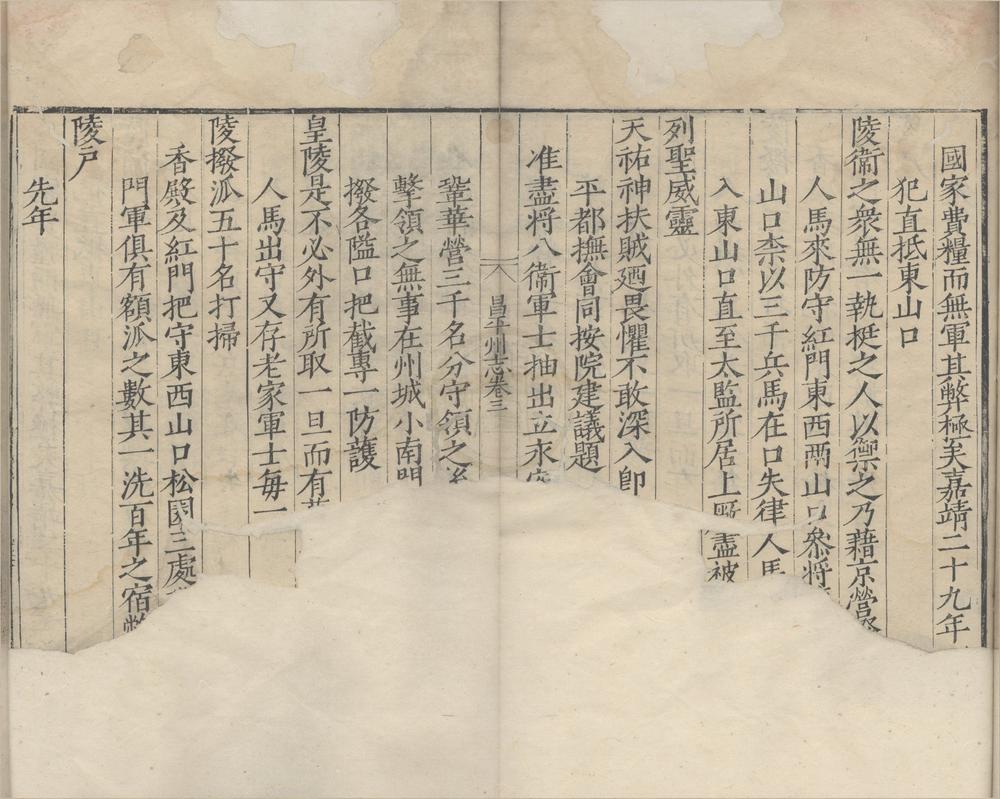 國家費糧而無軍其弊極矣嘉靖二十九年
犯直抵東山口
陵衞之衆無一執梃之人以禦之乃藉京營
人馬來防守紅門東西兩山口叅將
山口柰以三千兵馬在口失律人馬
入東山口直至太監所居上 盡被
列聖威靈
天祐神扶賊廼畏懼不敢深入即
平都撫會同按院建議題
准盡將八衞軍士抽出立永安
昌平州志卷三
鞏華營三千名分守領之
擊領之無事在州城小南門
撥各隘口把截專一防護
皇陵是不必外有所取一旦而有
人馬出守又存老家軍士每一
陵撥派五十名打掃
香殿及紅門把守東西山口松園三處
門軍俱有額派之數其一洗百年之宿弊
陵戶
先年